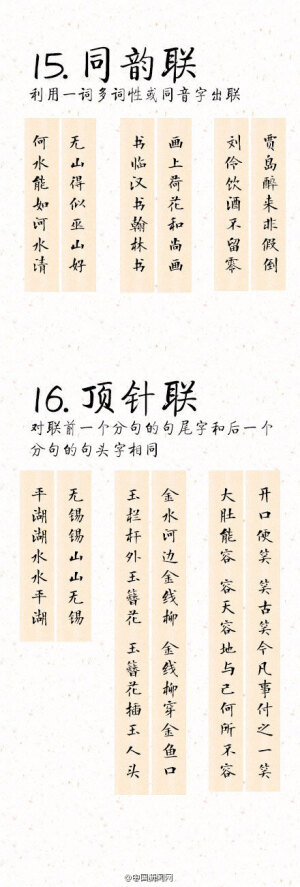 15. 同韵联
利用一词多词性或同音字出联
贾岛醉来非假倒
刘伶饮酒不留零
画上荷花和尚画
书临汉书翰林书
无山得似巫山好
何水能如河水清
16. 顶针联
对联前一个分句的句尾字和后一个
分句的句头字相同
开口便笑 笑古笑今凡事付之一笑
大肚能容 容天容地与己何所不容
金水河边金线柳 金线柳穿金鱼口
玉栏杆外玉簪花 玉簪花插玉人头
无锡锡山山无锡
平湖湖水水平湖
@中国新闻网